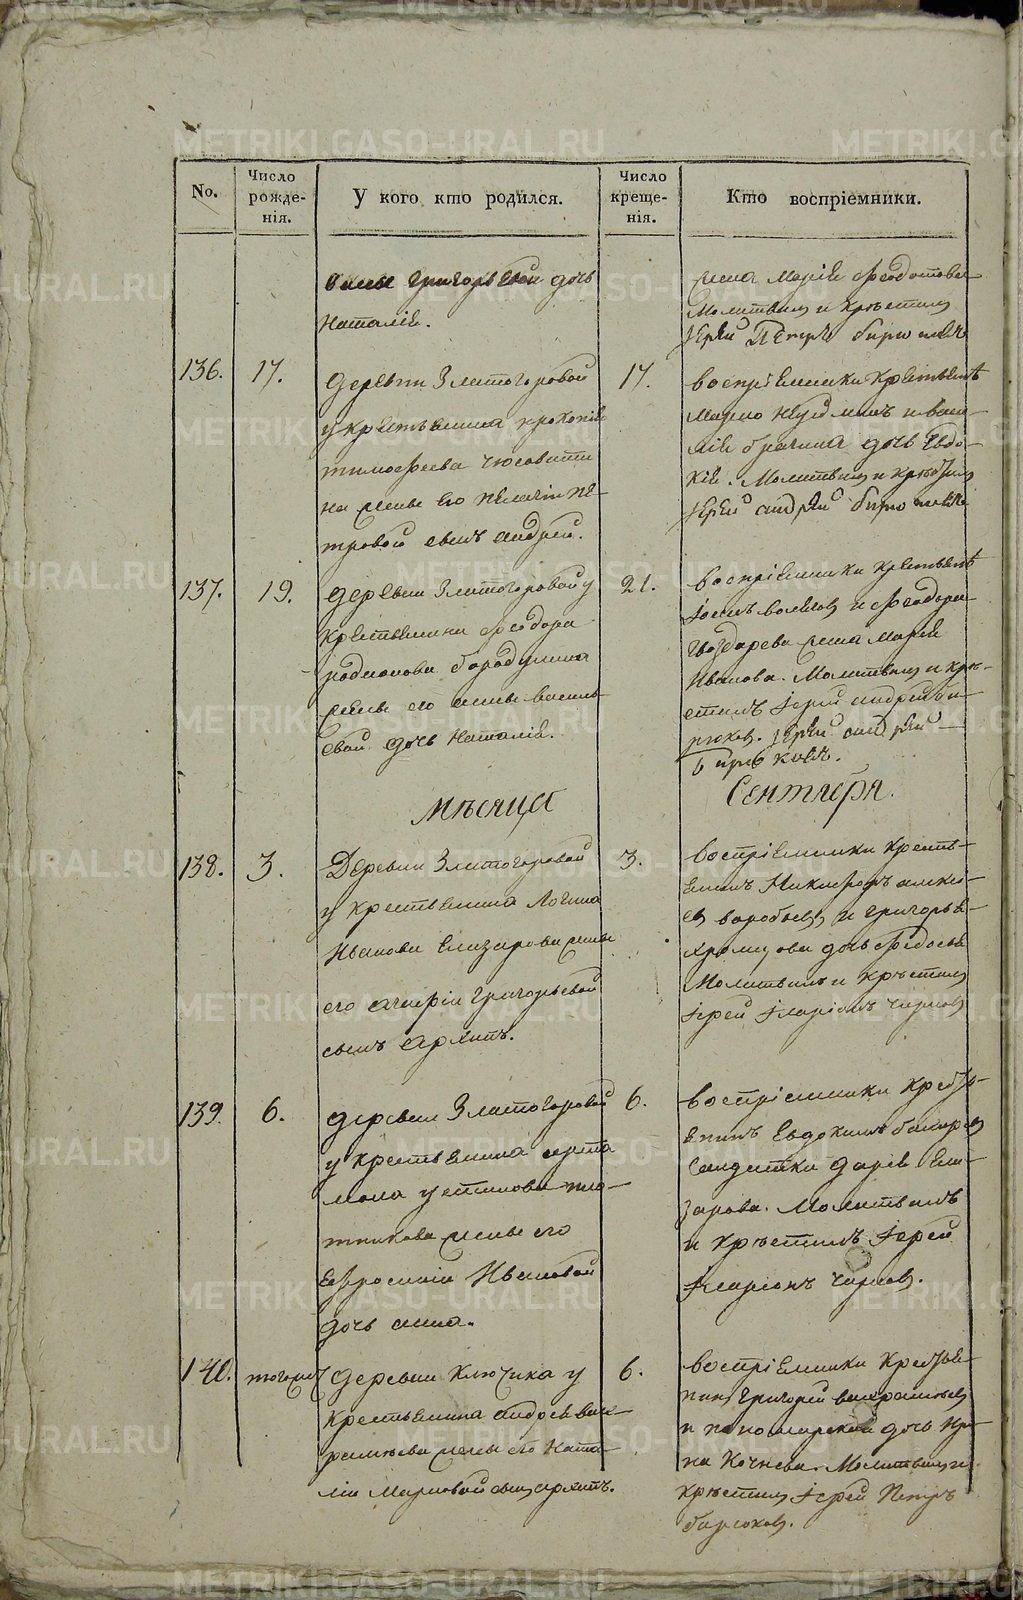 No.
Число рожде-
нія.
У кого кто родился.
Число креще-
нія.
Кто воспріемники.
Анне Григорьевой дочь
Наталія.
жена Марія Феодотова
Молитвилъ и крѣстилъ
Іерей Петръ Бирюковъ
136. 17.
деревни Златогоровой
у крестьянина Прокопія
Тимофеева
на жене его Пелагіи Пе-
тровой сынъ Андрей.
17.
воспріемники крестьянѣ
дочь Евдо-
кія. Молитвилъ и крѣстилъ
Іерей Андрей Бирюковъ
137. 19.
деревни Златогоровой у
крестьянина Феодора
Родионова Бородулина
жены его Анны Василь-
евой дочь Наталія.
21.
воспріемники крестьянѣ
и Феодора
жена Марія
Иванова. Молитвилъ и крѣ-
стилъ Іерей Андрей Би-
рюковъ. Іерей Андрей
Бирюковъ.
Мѣсяца
Сентября.
138. 3.
Деревни Златогоровой
у крестьянина Логина
Иванова Елизарова жены
его Григорьевой
сынъ Архипъ.
3.
воспріемники кресть-
янинъ Никифоръ Алексѣ-
евъ Воробьевъ и Григорья
дочь Федосья
Молитвилъ и крѣстилъ
Іерей Иларіонъ Чирковъ
139. 6.
деревни Златогоровой
у крестьянина Арта
мона Устинова Пло-
тникова жены его
Евфросиніи Ивановой
дочь Анна.
6.
воспріемники кресть-
янинъ Евдокимъ
солдатка Дарія Ели-
зарова. Молитвилъ
и крѣстилъ Іерей
Иларіонъ Чирковъ.
140. тогожъ
деревни Ключика у
крестьянина Андрея Вах-
рамѣева жены его Ната-
ліи Марковой сынъ Архипъ.
6.
воспріемники крестья-
нинъ Григорей Вахрамѣевъ
и пономарская дочь Ири-
на Кочнева. Молитвилъ и
крѣстилъ Іерей Петръ
Бирюковъ.
METRIKI.GASO-URAL.RU